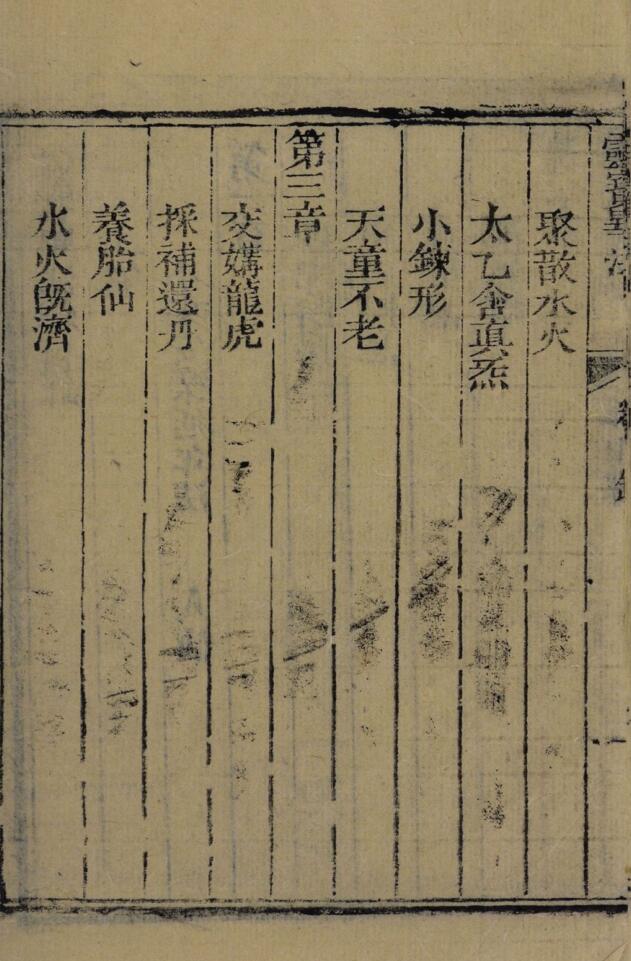 聚散水火
太乙含真炁
小鍊形
天童不老
第三章
交媾龍虎
採補還丹
養胎仙
水火旣濟